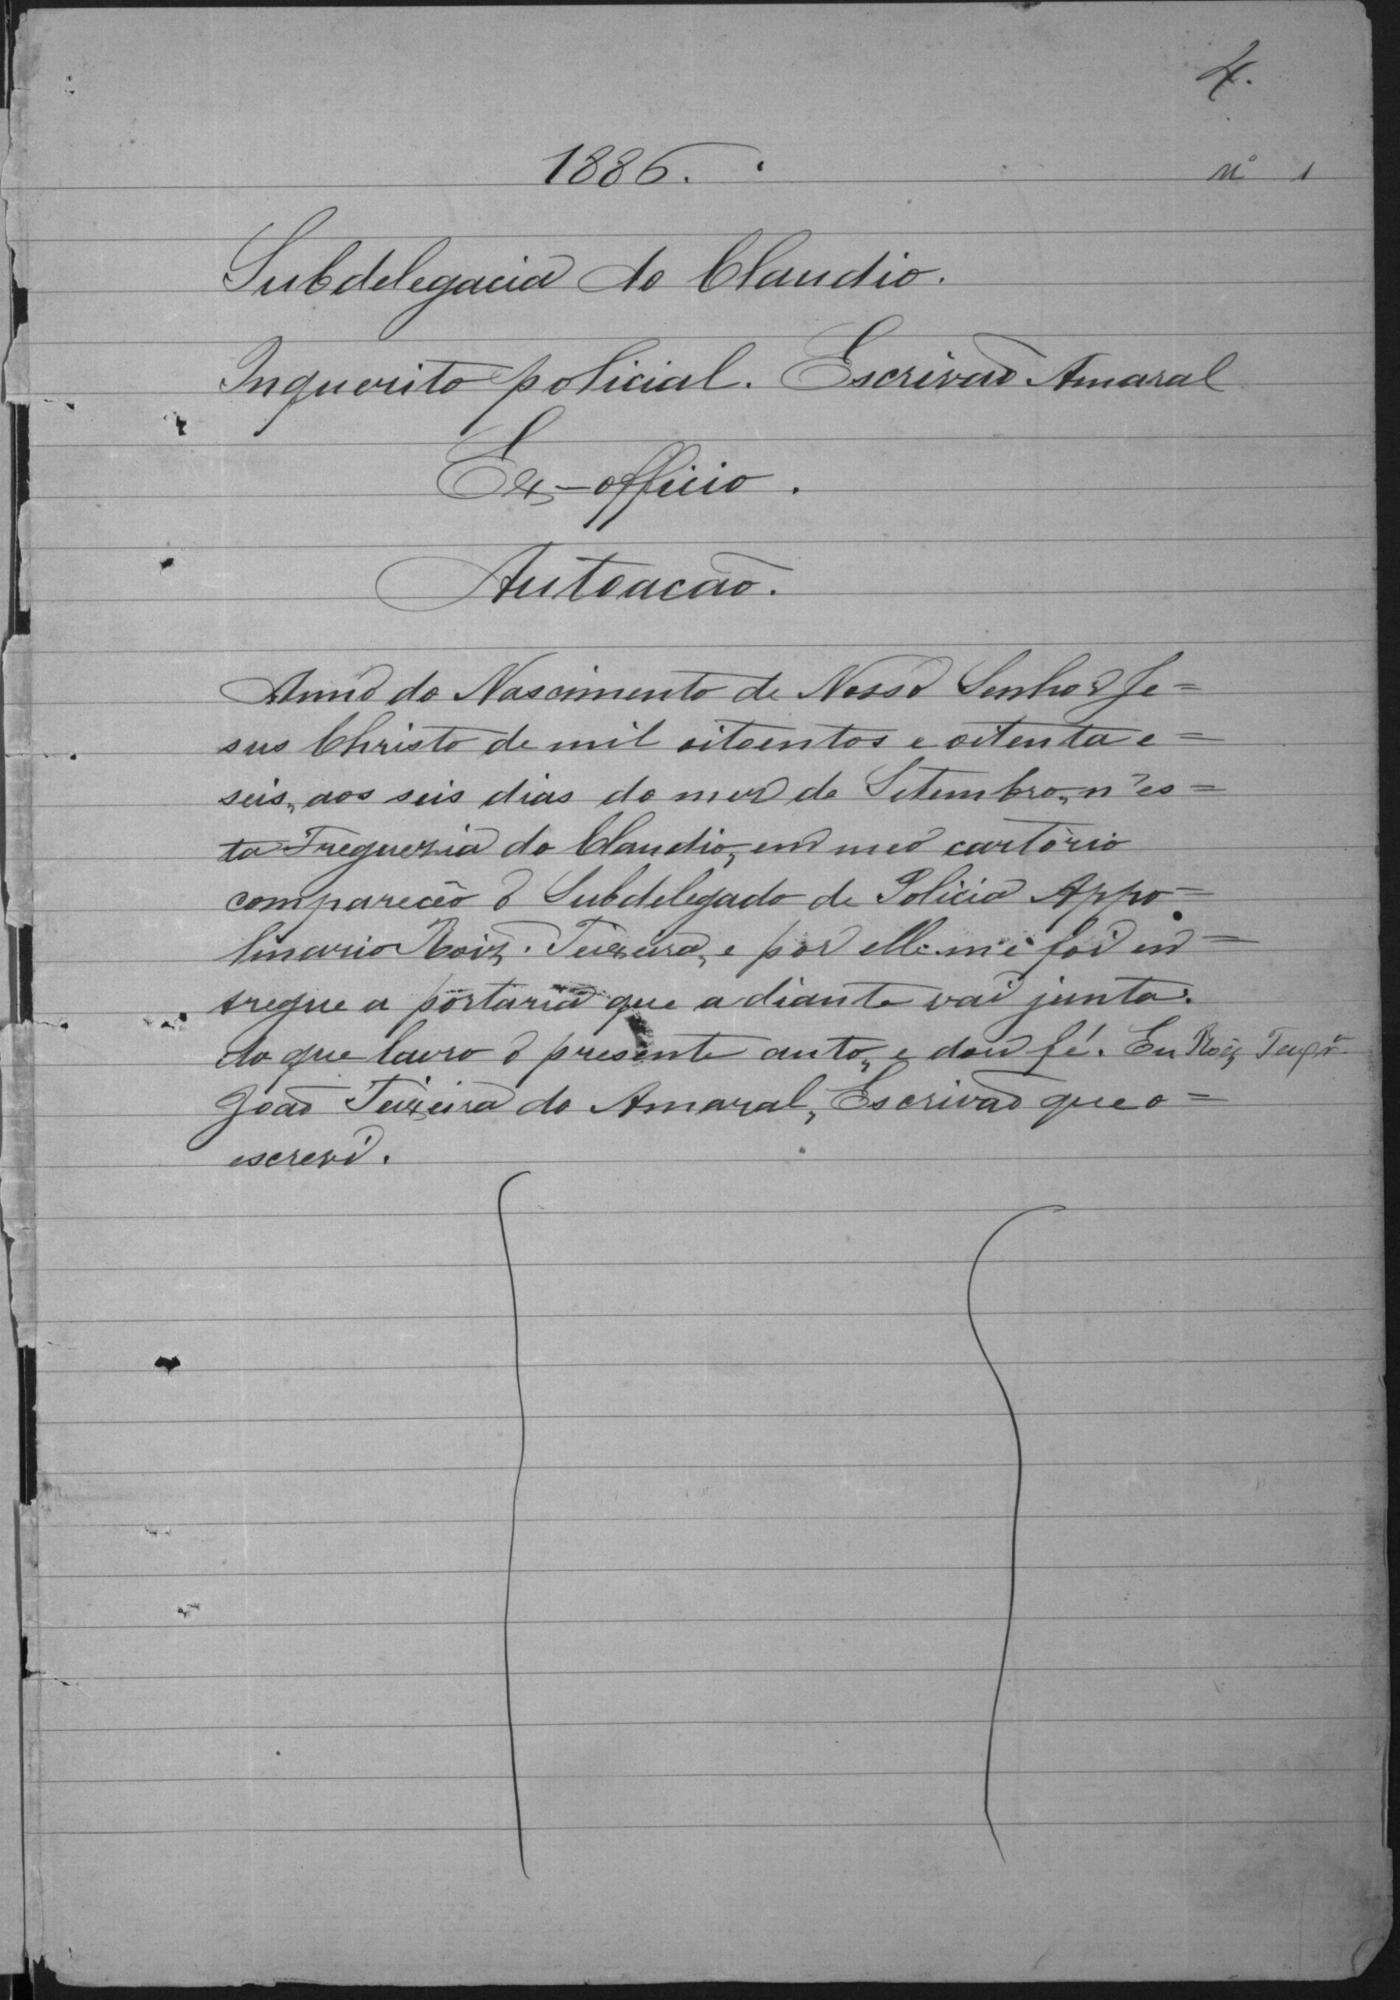 4.
1886.
nº 1
Subdelegacia do Claudio.
Inquerito policial. Escrivaõ Amaral
Ex-officio.
Autoacaõ.
Anno do Nascimento de Nosso Senhor Je=
sus Christo de mil oitoentos e oitenta e=
seis, aos seis dias do mez de Setembro, n'es=
ta Freguezia do Claudio, em meo cartório
compareceo o Subdelegado de Policia Appo=
linario Roiz. Teixeira, e por elle me foi en=
tregue a portaria que a diante vai junta.
do que lavro o presente auto, e dou fé. Eu Roiz
João Teixeira do Amaral, Escrivaõ que o=
escrevi.